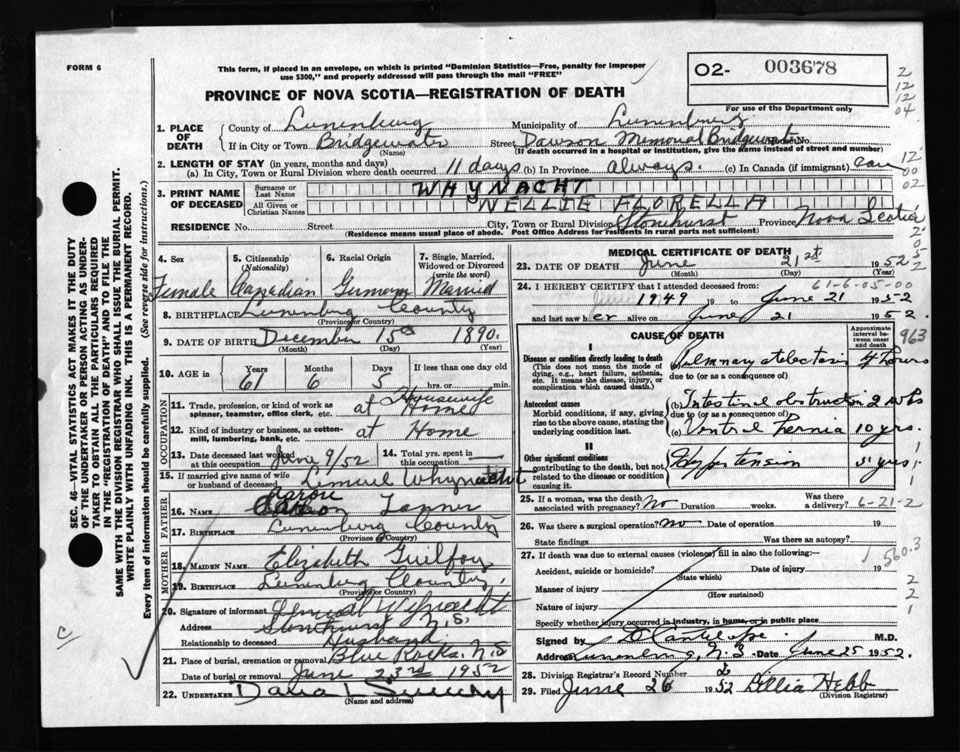 FORM 6
This form, if placed in an envelope, on which is printed "Dominion Statistics—Free, penalty for improper
use $300," and properly addressed will pass through the mail "FREE"
02- 003678
For use of the Department only
2
12
12
04
PROVINCE OF NOVA SCOTIA—REGISTRATION OF DEATH
1. PLACE OF DEATH
County of Lunenburg Municipality of Lunenburg
If in City or Town Bridgewater Street Dawson Memorial Bridgewater No.
(Name) (If death occurred in a hospital or institution, give the name instead of street and number)
2. LENGTH OF STAY (in years, months and days)
(a) In City, Town or Rural Division where death occurred 11 days (b) In Province always (c) In Canada (if immigrant) Can
12
00
02
3. PRINT NAME OF DECEASED
Surname or Last Name WHYNACHT
All Given or Christian Names NELLIE FLORELLA
RESIDENCE No. Street City, Town or Rural Division Stonehurst Province Nova Scotia
(Residence means usual place of abode. Post Office Address for residents in rural parts not sufficient)
2
0
5
2
4. Sex 5. Citizenship (Nationality) 6. Racial Origin 7. Single, Married, Widowed or Divorced (write the word)
Female Canadian German Married
8. BIRTHPLACE Lunenburg County
(Province or County)
9. DATE OF BIRTH December 15th 1890
(Month) (Day) (Year)
10. AGE in Years Months Days If less than one day
61 6 5 hrs. or min.
OCCUPATION
11. Trade, profession, or kind of work as spinner, teamster, office clerk, etc. Housewife at Home
12. Kind of industry or business, as cotton-mill, lumbering, bank, etc. at Home
13. Date deceased last worked at this occupation June 9/52 14. Total yrs. spent in this occupation
15. If married give name of wife or husband of deceased Lemuel Whynacht
FATHER
16. NAME Aaron Tanner
17. BIRTHPLACE Lunenburg County
(Province or County)
MOTHER
18. MAIDEN NAME Elizabeth Guilfoy
19. BIRTHPLACE Lunenburg County
(Province or County)
20. Signature of informant Lemuel Whynacht
Address Stonehurst N.S.
Relationship to deceased Husband
21. Place of burial, cremation or removal Blue Rocks, N.S
Date of burial or removal June 23rd 1952
22. UNDERTAKER Dana L Sweeny
(Name and address)
MEDICAL CERTIFICATE OF DEATH
23. DATE OF DEATH June 21st 1952
(Month) (Day) (Year)
24. I HEREBY CERTIFY that I attended deceased from: 61-6-05-00
1949 19 to June 21 1952
and last saw her alive on June 21 1952.
CAUSE OF DEATH
Approximate interval between onset and death
963
I
Disease or condition directly leading to death
(This does not mean the mode of dying, e.g., heart failure, asthenia, etc. It means the disease, injury, or complication which caused death.)
(a) Pulmonary atelectasis 4 hours
due to (or as a consequence of)
Antecedent causes
Morbid conditions, if any, giving rise to the above cause, stating the underlying condition last.
(b) Intestinal obstruction 2 wks
due to (or as a consequence of)
(c) Ventral hernia 10 yrs.
II
Other significant conditions
contributing to the death, but not related to the disease or condition causing it.
Hypertension 5 yrs.
1
1
1
25. If a woman, was the death associated with pregnancy? No Duration weeks. Was there a delivery? 6-21-2
26. Was there a surgical operation? No Date of operation 19
State findings Was there an autopsy?
27. If death was due to external causes (violence) fill in also the following:—
1
560.3
Accident, suicide or homicide? Date of injury 19
(State which)
Manner of injury
(How sustained)
Nature of injury
2
2
1
Specify whether injury occurred in industry, in home, or in public place
Signed by M.D.
Address Lunenburg, N.S. Date June 25 1952.
28. Division Registrar's Record Number
29. Filed June 26 1952 Lillia Hebb
(Division Registrar)
SEC. 46—VITAL STATISTICS ACT MAKES IT THE DUTY
OF THE UNDERTAKER OR PERSON ACTING AS UNDER-
TAKER TO OBTAIN ALL THE PARTICULARS REQUIRED
IN THE "REGISTRATION OF DEATH" AND TO FILE THE
SAME WITH THE DIVISION REGISTRAR WHO SHALL ISSUE THE BURIAL PERMIT.
WRITE PLAINLY WITH UNFADING INK. THIS IS A PERMANENT RECORD.
Every item of information should be carefully supplied. (See reverse side for instructions.)